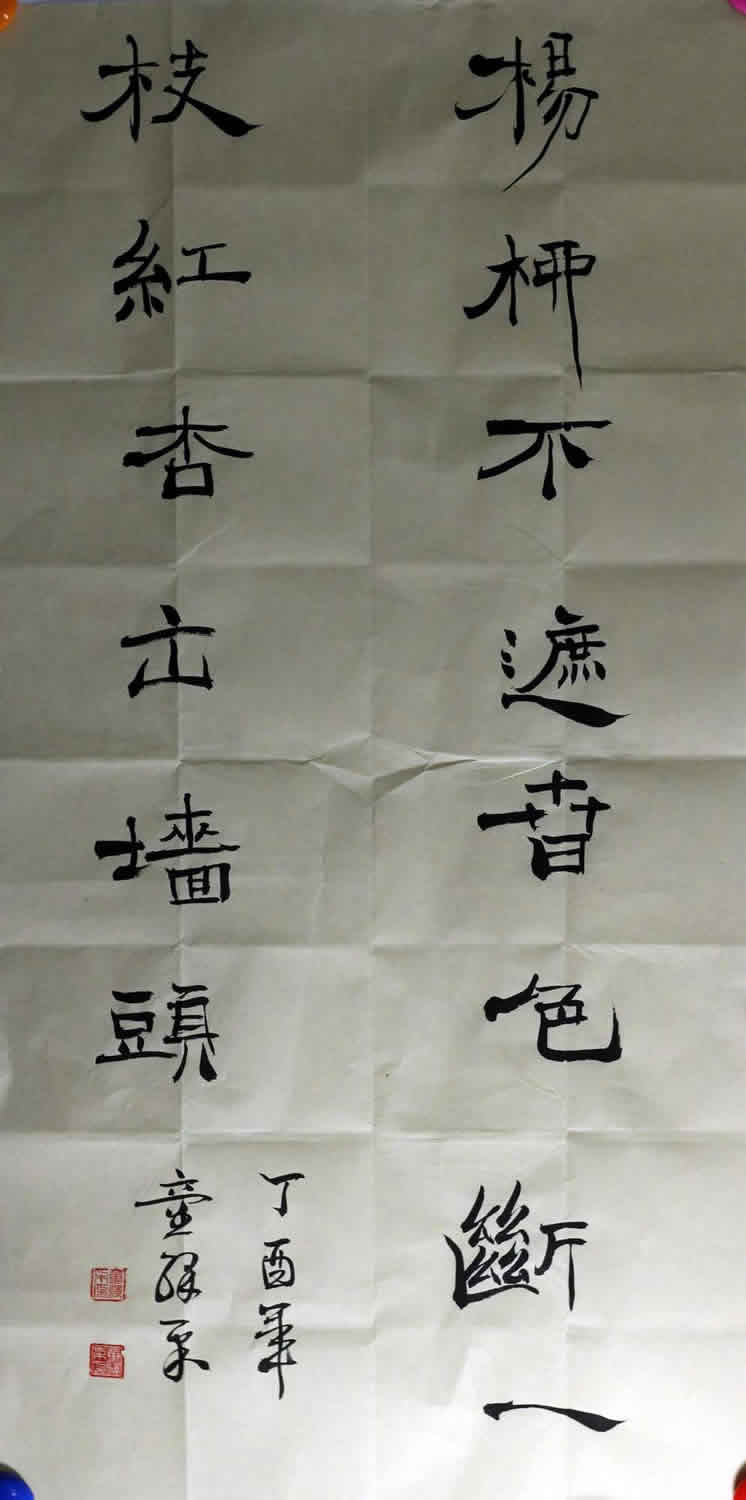 楊柳不遮春色斷一
枝紅杏出墻頭
丁酉年
童